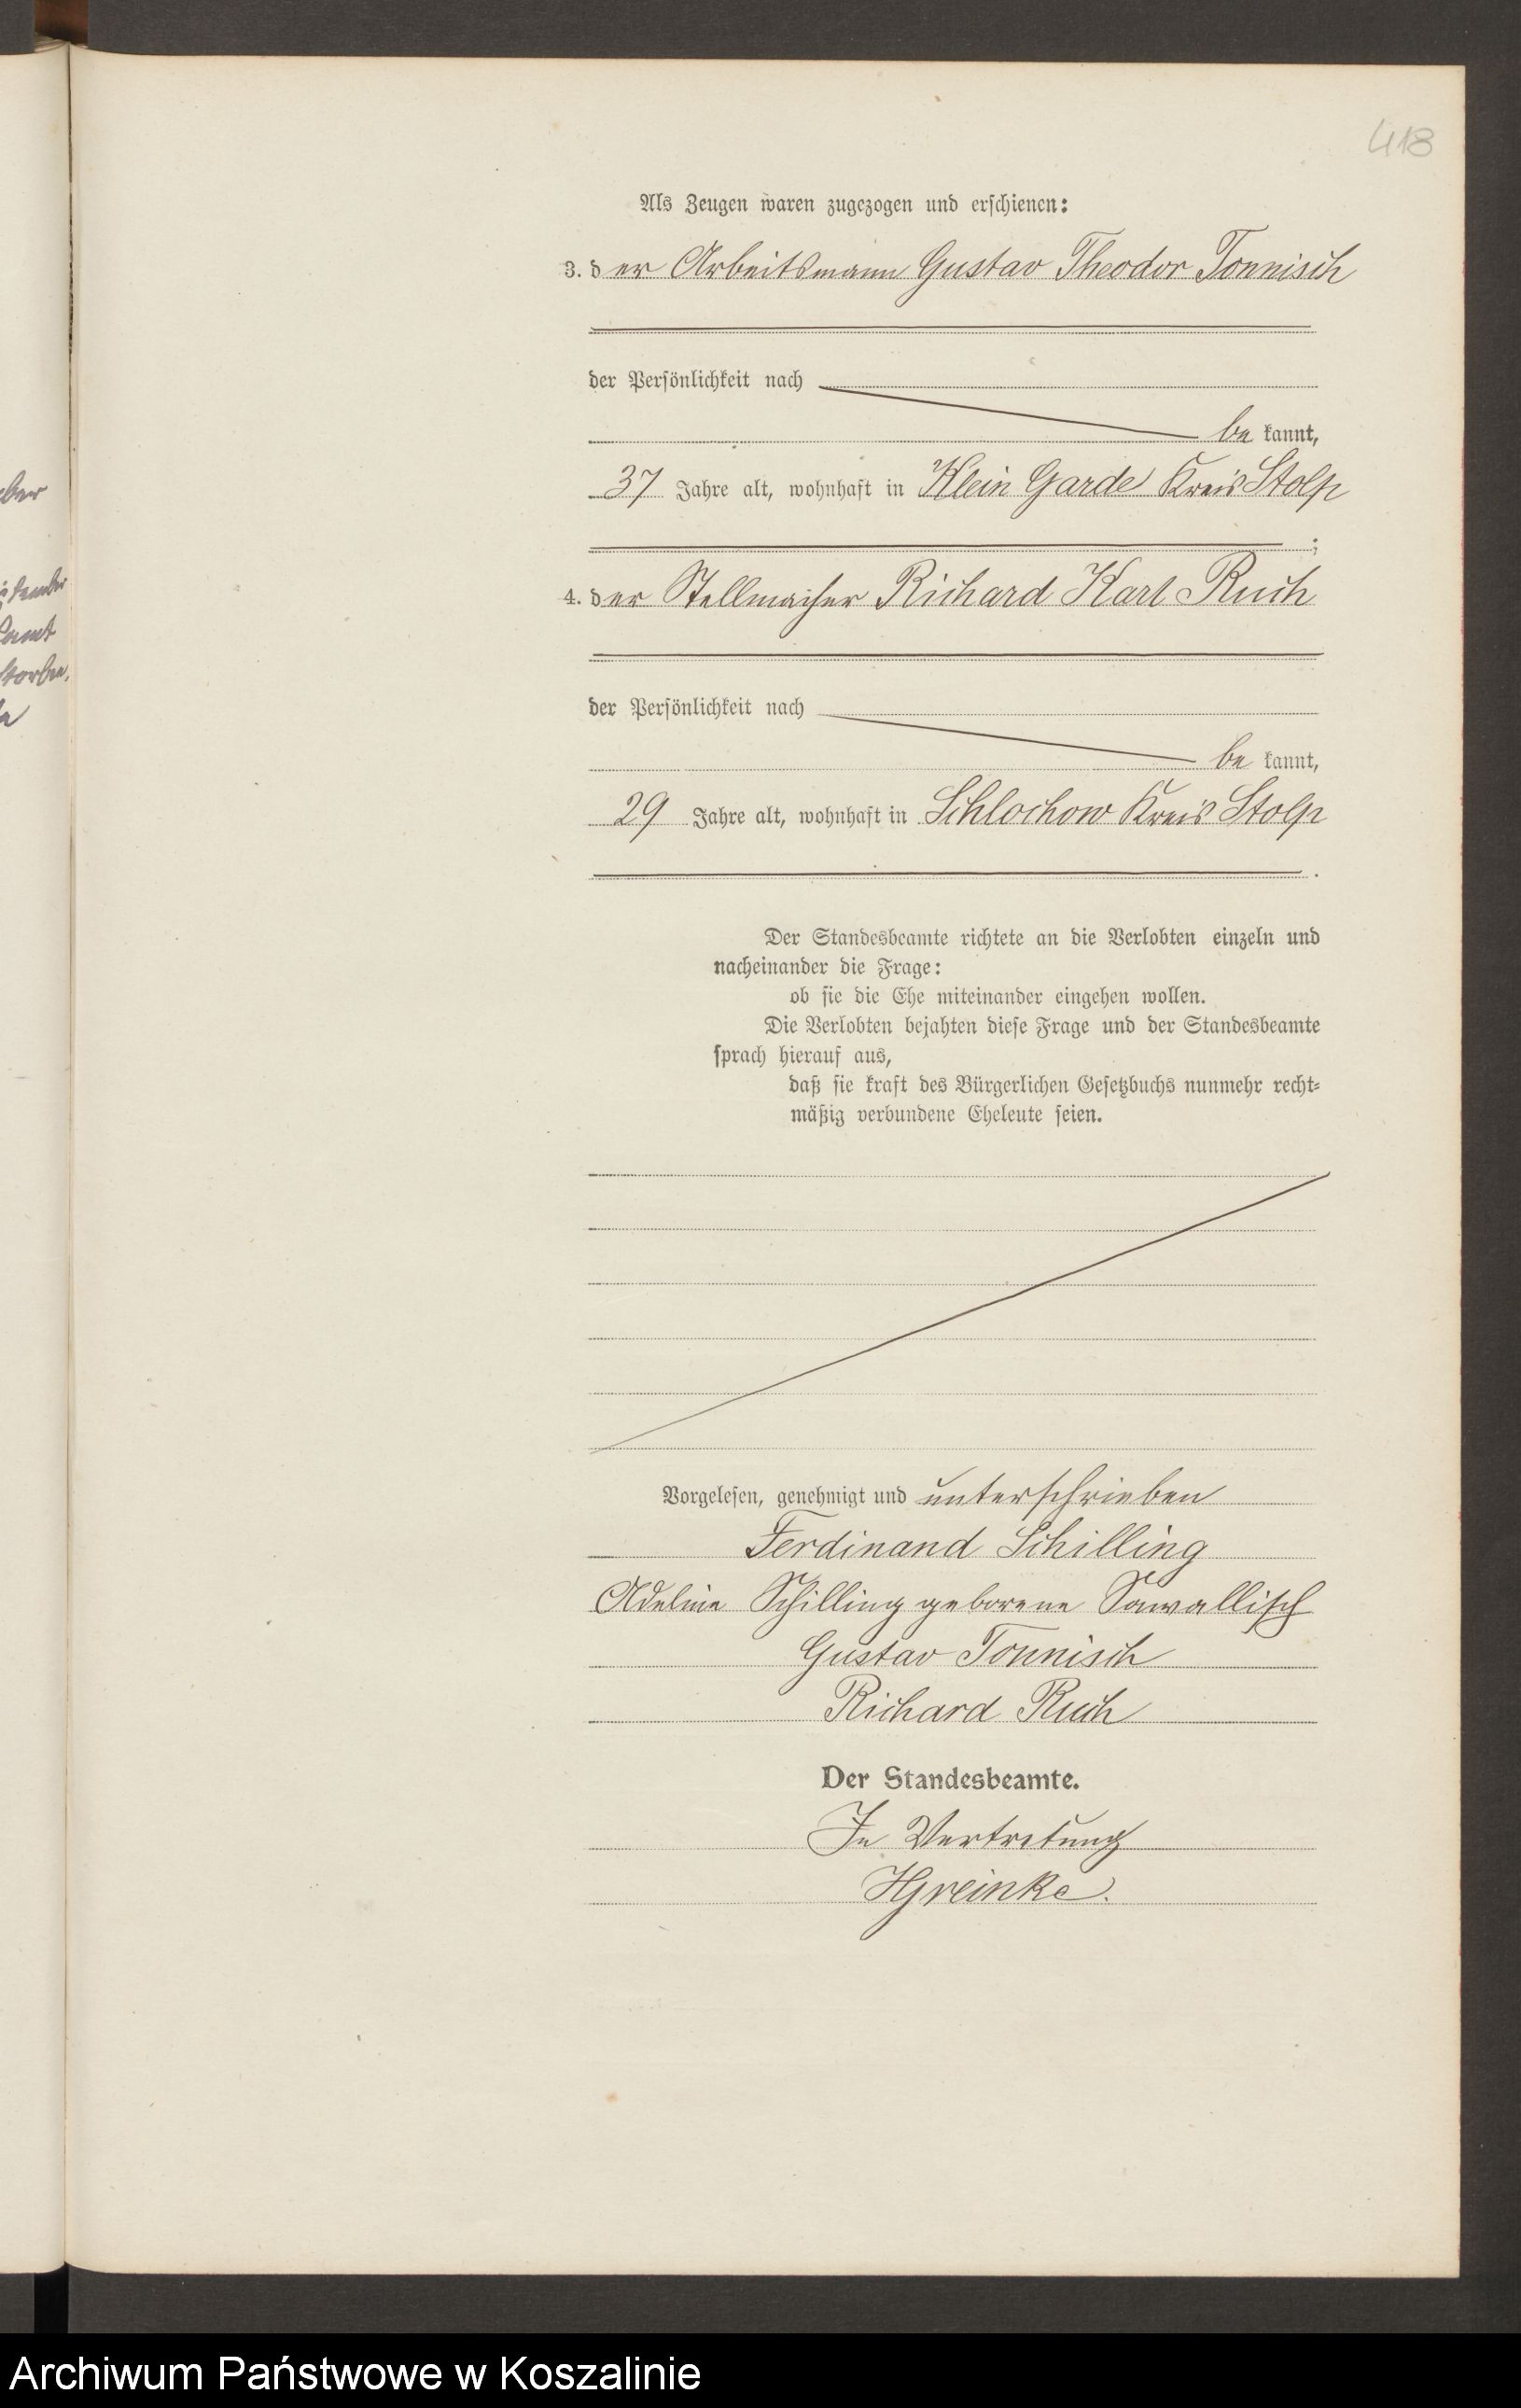 418
Als Zeugen waren zugezogen und erschienen:
3. der Arbeitsmann Gustav Theodor Tonnisch
der Persönlichkeit nach
be kannt,
37 Jahre alt, wohnhaft in Klein Garde Kreis Stolp
;
4. der Stellmacher Richard Karl Ruch
der Persönlichkeit nach
be kannt,
29 Jahre alt, wohnhaft in Schlochow Kreis Stolp
.
Der Standesbeamte richtete an die Verlobten einzeln und
nacheinander die Frage:
ob sie die Ehe miteinander eingehen wollen.
Die Verlobten bejahten diese Frage und der Standesbeamte
sprach hierauf aus,
daß sie kraft des Bürgerlichen Gesetzbuchs nunmehr recht-
mäßig verbundene Eheleute seien.
Vorgelesen, genehmigt und unterschrieben
Ferdinand Schilling
Adeline Schilling geborene Sawallisch
Gustav Tonnisch
Richard Ruch
Der Standesbeamte.
In Vertretung
HGreinke.
Archiwum Państwowe w Koszalinie